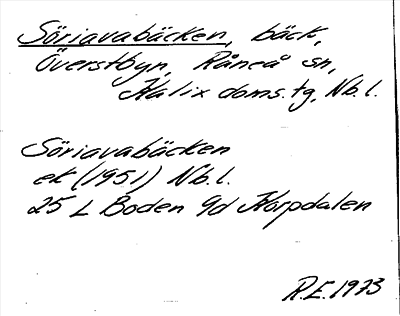 Söriavabäcken, bäck,
Överstbyn, Råneå sn,
Kalix doms.tg, Nb.l.
Söriavabäcken
ek (1951) Nb.l.
25 L Boden 9d Korpdalen
R.E. 1973